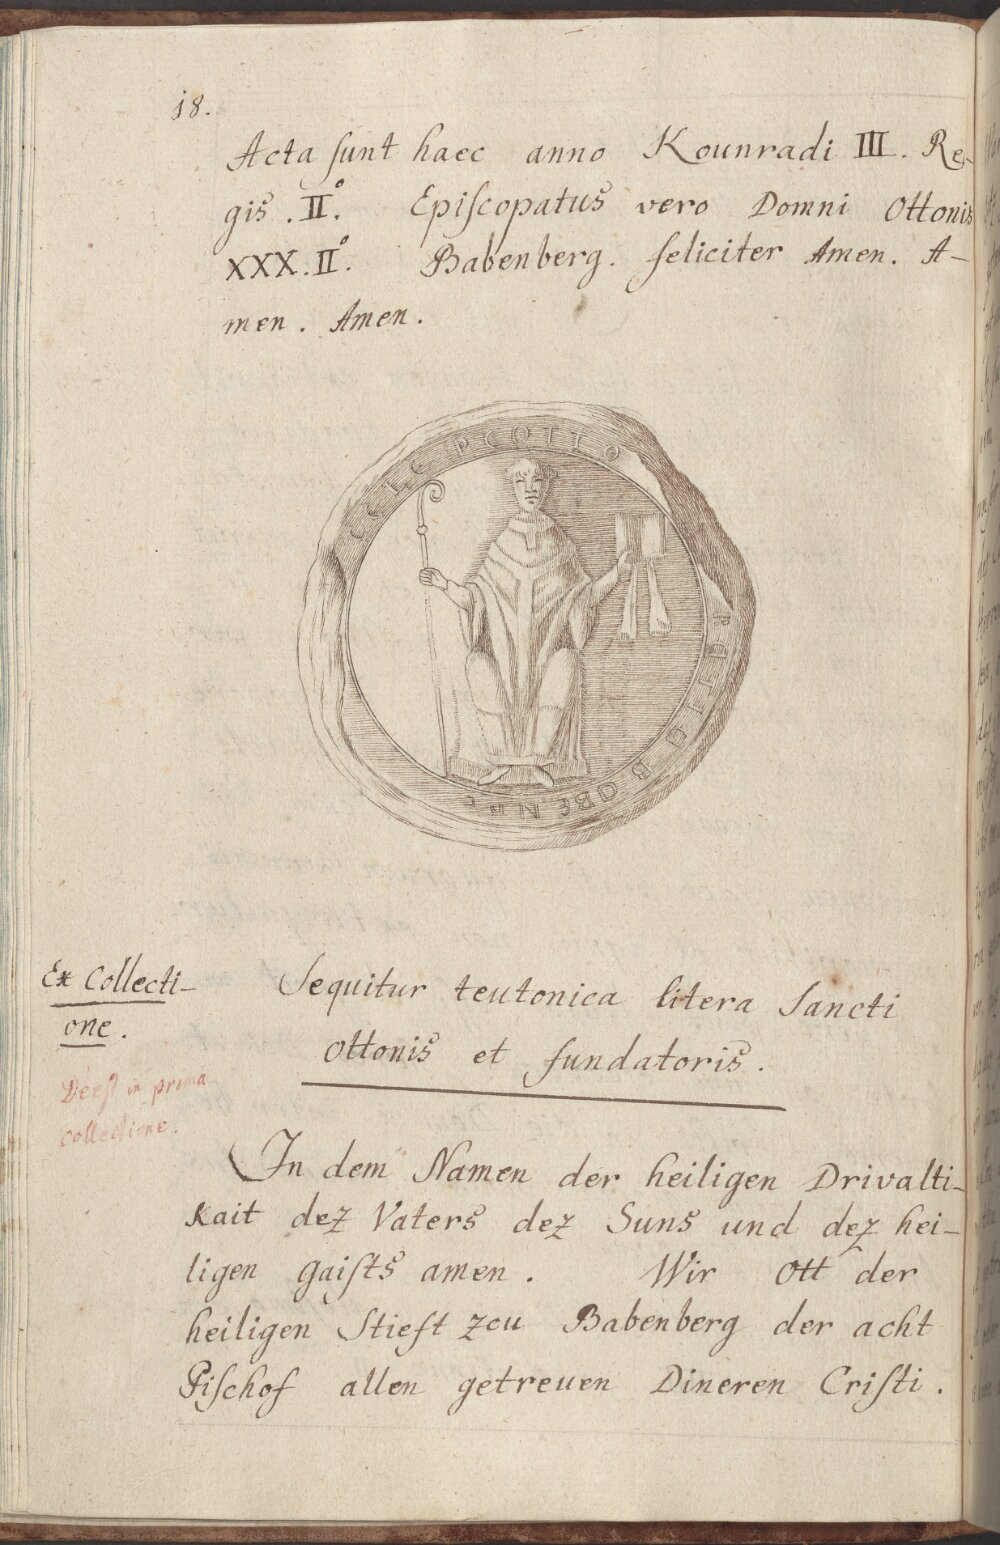 18.
Acta sunt haec anno Kounradi III. Re-
gis .IIº. Episcopatus vero Domni Ottonis
XXX.IIº. Babenberg. feliciter Amen. A-
men. Amen.
OTTO
BABENBE
Ex Collecti-
one.
Deest in prima
collectione.
Sequitur teutonica litera Sancti
Ottonis et fundatoris.
In dem Namen der heiligen Drivalti-
kait dez Vaters dez Suns und dez hei-
ligen gaists amen. Wir Ott der
heiligen Stieft zcu Babenberg der acht
Pischof allen getreuen Dineren Cristi.